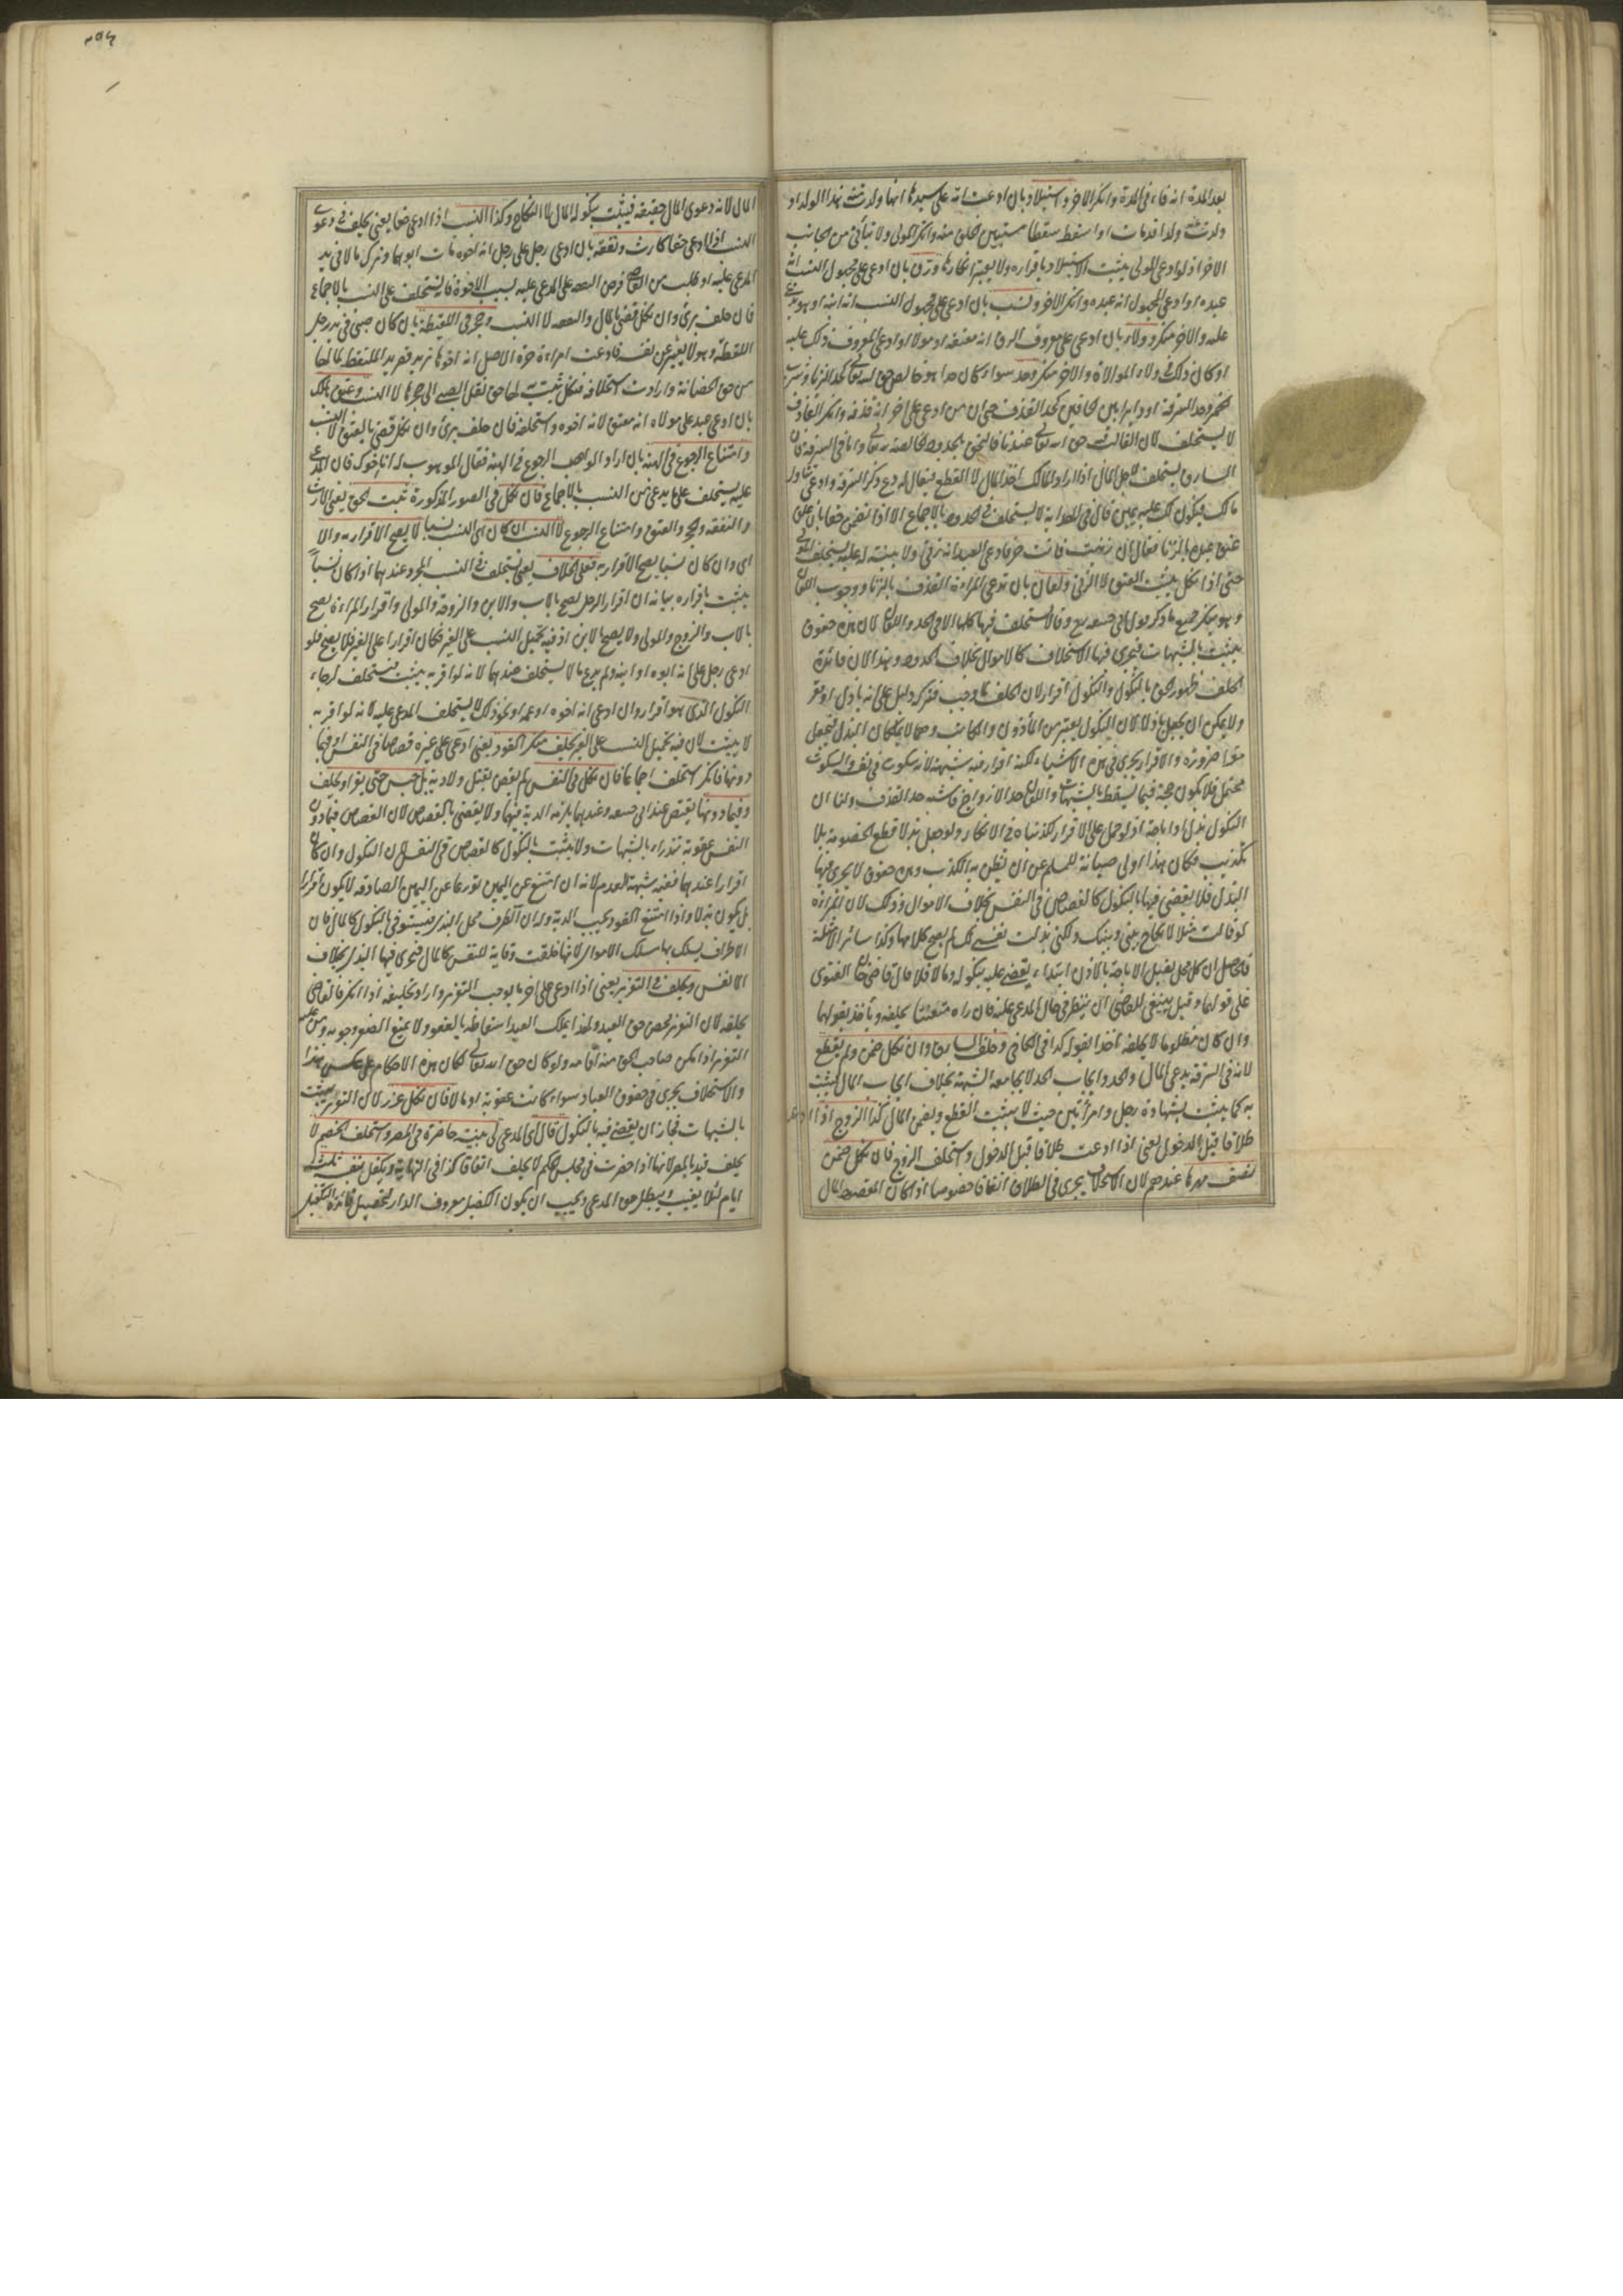 بعد المدة انه فاء في المدة وانكر الآخر واستيلاد بان ادعت امة على سيدها انها ولدت منه هذا الولد او
ولدت منه ولدا قد مات او اسقطت سقطا مستبين الخلق منه وانكر المولى ولا يتأتى من الجانب
الآخر اذ لو ادعى المولى يثبت الاستيلاد باقراره ولا يعتبر انكارها ورق بان ادعى على مجهول النسب انه
عبده او ادعى المجهول انه عبده وانكر الآخر ونسب بان ادعى على مجهول النسب انه ابنه او هو يدعى
عليه والآخر منكر وولاء بان ادعى على معروف الرق انه معتقه او مولاه او ادعى المعروف ذلك عليه
او كان ذلك في ولاء الموالاة والآخر منكر وحد سواء كان حدا هو خالص حق لله تعالى كحد الزنا وشرب
الخمر وحد السرقة او دائرا بين الحقين كحد القذف حتى ان من ادعى على آخر انه قذفه وانكر القاذف
لا يستحلف لان الغالب فيه حق الله تعالى عندنا فالتحق بالحدود الخالصة لله تعالى واما في السرقة فان
السارق يستحلف لاجل المال اذا اراد المالك اخذ المال لا القطع فيقال له دع ذكر السرقة وادع تناول
مالك فيكون لك عليه يمين قال في الهداية لا يستحلف في الحدود بالاجماع الا اذا تضمن حقا بان علق
عتق عبده بالزنا فقال ان زنيت فانت حر فادعى العبد انه زنى ولا بينة له عليه يستحلف المولى
حتى اذا نكل يثبت العتق لا الزنى ولعان بان تدعى المراءة القذف بالزنا ووجوب اللعان
وهو ينكر جميع ما ذكر قول ابي حنيفة رح وقالا يستحلف فيها كلها الا في الحد واللعان لان هذه حقوق
يثبت بالشبهات فيجرى فيها الاستحلاف كالاموال بخلاف الحدود وهذا لان فائدة
الحلف ظهور الحق بالنكول والنكول اقرار لان الحلف واجب فتركه دليل على انه باذل او مقر
ولا يمكن ان يجعل باذلا لان النكول يعتبر من المأذون والمكاتب وهما لا يملكان البذل فيجعل
مقرا ضرورة والاقرار يجرى في هذه الاشياء لكنه اقرار فيه شبهة لانه سكوت في نفسه والسكوت
محتمل فلا يكون حجة فيما يسقط بالشبهات واللعان حد الازواج فاشبه حد القذف ولنا ان
النكول بذل او اباحة اذ لو حمل على الاقرار لكذبناه في الانكار ولو جعل بذلا قطع الخصومة بلا
تكذيب فكان هذا اولى صيانة للمسلم عن ان يظن به الكذب وهذه حقوق لا يجرى فيها
البذل فلا يقضى فيها بالنكول كالقصاص في النفس بخلاف الاموال وذلك لان المراءة
لو قالت مثلا لا نكاح بينى وبينك ولكنى بذلت نفسى لك لم يصح كلامها وكذا سائر الامثلة
فالحاصل ان كل محل يقبل الاباحة بالاذن ابتداء يقضى عليه بنكوله وما لا فلا قال قاضيخان الفتوى
على قولهما وقيل ينبغى للقاضى ان ينظر في حال المدعى عليه فان راه متعنتا يحلفه ويأخذ بقولهما
وان كان مظلوما لا يحلفه اخذا بقوله كذا في الكافى وحلف السارق وان نكل ضمن ولم يقطع
لانه في السرقة يدعى المال والحد وايجاب الحد لا يجامعه الشبهة بخلاف ايجاب المال فيثبت
به كما يثبت بشهادة رجل وامرأتين حيث لا يثبت القطع ويضمن المال وكذا الزوج اذا ادعت
طلاقا قبل الدخول يعنى اذا ادعت طلاقا قبل الدخول واستحلف الزوج فان نكل ضمن
نصف مهرها عندهم لان الاستحلاف يجرى في الطلاق اتفاقا خصوصا اذا كان المقصود المال
المال لانه دعوى المال حقيقة فيثبت بنكوله المال لا النكاح وكذا النسب اذا ادعى حقا يعنى يحلف في دعوى
النسب اذا ادعى حقا كارث ونفقة بان ادعى رجل على رجل انه اخوه مات ابوهما وترك مالا في يد
المدعى عليه او طلب من القاضى فرض النفقة على المدعى عليه بسبب الاخوة فانه يستحلف على النسب بالاجماع
فان حلف برئ وان نكل قضى بالمال والنفقة لا النسب وحجر في اللقيطة بان كان صبى في يد رجل
التقطه وهو لا يعبر عن نفسه فادعت امراءة حرة الاصل انه اخوها تريد قصر يد الملتقط لما لها
من حق الحضانة وارادت استحلافه فنكل ثبت لها حق نقل الصبى الى حجرها لا النسب وعتق بملك
بان ادعى عبد على مولاه انه معتق لانه اخوه واستحلفه فان حلف برئ وان نكل قضى بالعتق لا النسب
وامتناع الرجوع في الهبة بان اراد الواهب الرجوع في الهبة فقال الموهوب له انا اخوك فان المدعى
عليه يستحلف على ما يدعى من النسب بالاجماع فان نكل في الصور المذكورة ثبت الحق يعنى الارث
والنفقة والحجر والعتق وامتناع الرجوع لا النسب ان كان اى النسب نسبا لا يصح الاقرار به والا
اى وان كان نسبا يصح الاقرار به فعلى الخلاف يعنى يستحلف في النسب المجرد عندهما اذا كان نسباً
يثبت باقراره بيانه ان اقرار الرجل يصح بالاب والابن والزوجة والمولى واقرار المراءة يصح
بالاب والزوج والمولى ولا يصح بالابن اذ فيه تحميل النسب على الغير فكان اقرارا على الغير فلا يصح فلو
ادعى رجل على انه ابوه او ابنه ولم يدع مالا يستحلف عندهما لانه لو اقر به يثبت فيستحلف لرجاء
النكول الذى هو اقرار وان ادعى انه اخوه او عمه او نحو ذلك لا يستحلف المدعى عليه لانه لو اقر به
لا يثبت لان فيه تحميل النسب على الغير يحلف منكر القود يعنى ادعى على غيره قصاصا في النفس او فيما
دونها فانكر استحلف اجماعا فان نكل في النفس لم يقض بقتل ولا دية بل حبس حتى يقر او يحلف
وفيما دونها يقتص عند ابى حنيفة وعندهما يلزمه الدية فيهما ولا يقضى بالقصاص لان القصاص فيما دون
النفس عقوبة تندراء بالشبهات ولا يثبت بالنكول كالقصاص في النفس لان النكول وان كان
اقرارا عندهما ففيه شبهة العدم لانه ان امتنع عن اليمين تورعا عن اليمين الصادقة لا يكون اقرارا
بل يكون بذلا واذا امتنع القود يجب الدية وله ان الطرف محل البذل فيستوفى بالنكول كالمال فان
الاطراف يسلك بها مسلك الاموال لانها خلقت وقاية للنفس كالمال فيجرى فيها البذل بخلاف
الانفس ويحلف في التعزير يعنى اذا ادعى على آخر ما يوجب التعزير واراد تحليفه اذا انكر فالقاضى
يحلفه لان التعزير محض حق العبد ولهذا يملك العبد اسقاطه بالعفو ولا يمنع الصغر وجوبه ومن عليه
التعزير اذا امكن صاحب الحق منه اقامه ولو كان حق الله تعالى لكان هذه الاحكام على عكس هذا
والاستحلاف يجرى في حقوق العباد سواء كانت عقوبة او مالا فان نكل عزر لان التعزير يثبت
بالشبهات فجاز ان يقضى فيه بالنكول قال اى المدعى لى بينة حاضرة في المصر واستحلف الخصم لا
يحلف قيد بالمصر لانها اذا حضرت في مجلس الحكم لا يحلف اتفاقا كذا في النهاية ويكفل بنفسه ثلثة
ايام لئلا يغيب فيبطل حق المدعى ويجب ان يكون الكفيل معروف الدار لتحصيل فائدة التكفيل